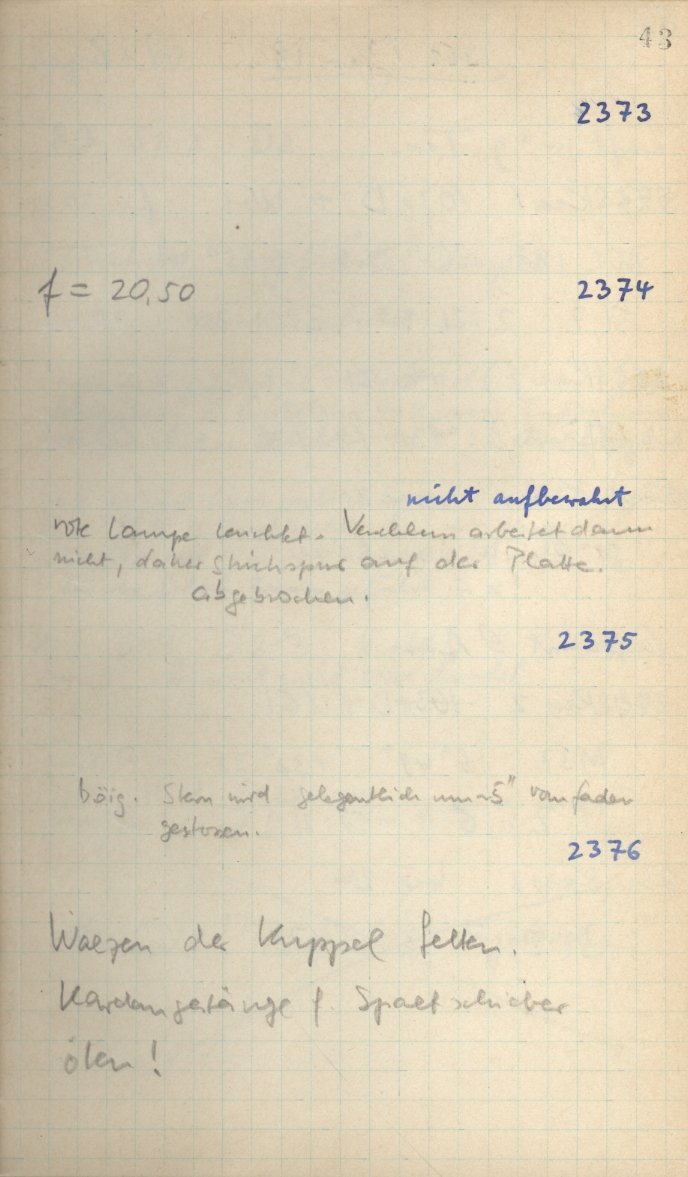 43
2373
f = 20,50
2374
nicht aufbewahrt
rote Lampe leuchtet. arbeitet dann
nicht, daher Strichspur auf der Platte.
abgebrochen.
2375
böig. Stern wird gelegentlich um ~5" vom Faden
gestossen.
2376
Walzen der Kuppel fetten.
Kardangestänge f. Spaltschieber
ölen!